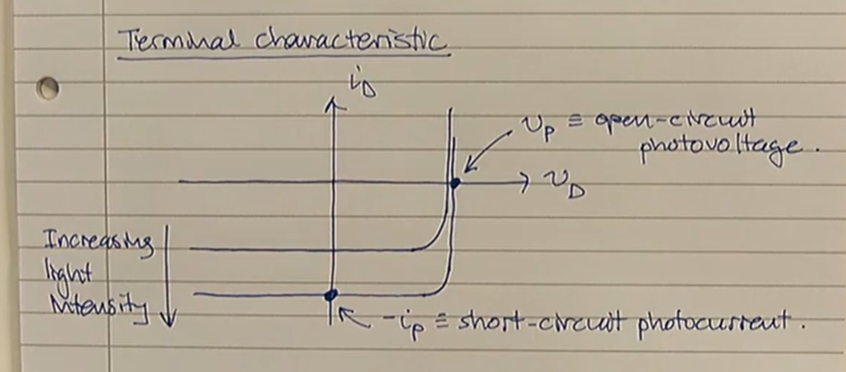 Terminal characteristic
i_D
v_P ≡ open-circuit
photovoltage.
v_D
Increasing
light
intensity
-i_p ≡ short-circuit photocurrent.